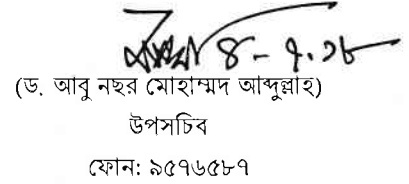 ৪-৭.১৮
(ড. আবু নছর মোহাম্মদ আব্দুল্লাহ)
উপসচিব
ফোন: ৯৫৭৬৫৮৭